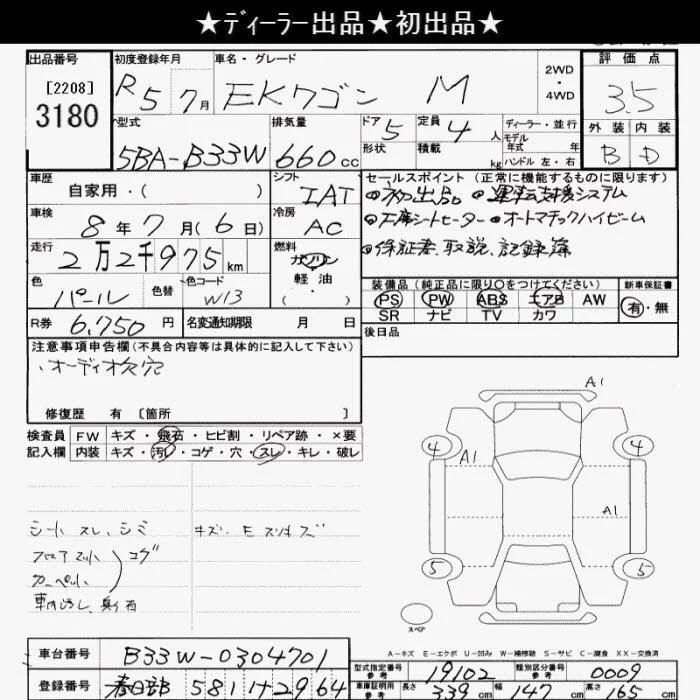 ★ディーラー出品★初出品★
出品番号
[2208]
3180
初度登録年月
R5 7月
車名・グレード
EKワゴン M
2WD
・
4WD
評価点
3.5
型式
5BA-B33W
排気量
660cc
ドア
5
形状
定員
4人
積載
kg
ディーラー・並行
モデル
年式 年
ハンドル 左・右
外装
B
内装
D
車歴
自家用・( )
シフト
IAT
セールスポイント (正常に機能するものに限ります)
初出品 運転支援システム
左席シートヒーター オートマチックハイビーム
保証書、取説、記録簿
車検
8年7月(6日)
冷房
AC
走行
2万2千975km
燃料
ガソリン
軽油
( )
色
パール
色替
色コード
W13
装備品 (純正品に限り○をつけてください)
PS PW ABS エアB AW
SR ナビ TV カワ
新車保証書
有・無
R券
6,750円
名変通知期限 月 日
後日品
注意事項申告欄 (不具合内容等は具体的に記入して下さい)
・オーディオ欠穴
修復歴 有 [箇所 ]
検査員
記入欄
FW キズ・飛石・ヒビ割・リペア跡・×要
内装 キズ・汚レ・コゲ・穴・スレ・キレ・破レ
シート スレ、シミ
フロアマット コゲ
カーペット
車内汚レ、臭有
A1
4
4
A1
A1
5
5
スペア
A-キズ E-エクボ U-凹み W-補修跡 S-サビ C-腐食 XX-交換済
車台番号
B33W-0304701
登録番号
春日部 581 け 2964
型式指定番号
参考
19102
類別区分番号
参考
0009
車庫証明用
参考
長さ
339cm
幅
147cm
高さ
165cm